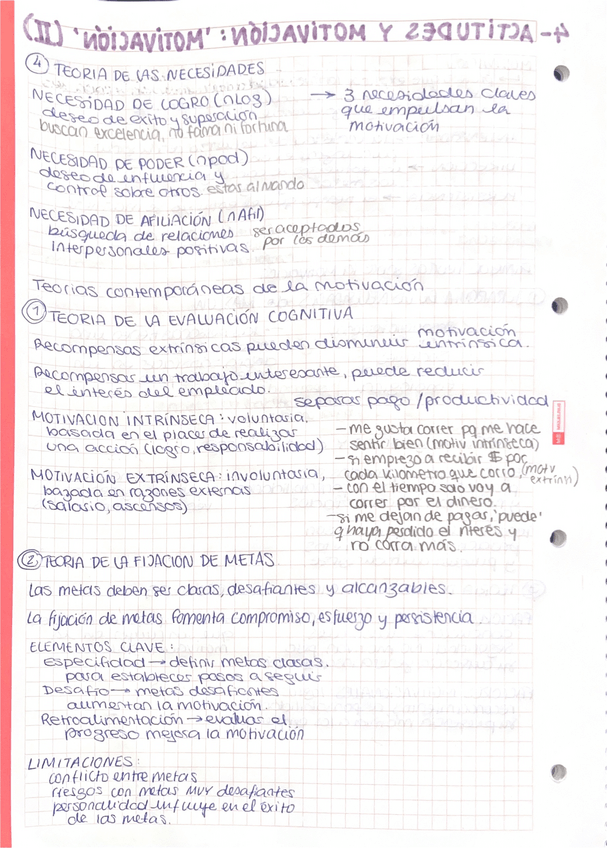 4- ACTITUDES Y MOTIVACIÓN: 'MOTIVACIÓN' (II)
④ TEORIA DE LAS NECESIDADES
NECESIDAD DE LOGRO (nLog)
deseo de exito y superación
buscan excelencia, no fama ni fortuna
→ 3 necesidades claves
que empulsan la
motivación
NECESIDAD DE PODER (npod)
deseo de influencia y
control sobre otros estas al mando
NECESIDAD DE AFILIACIÓN (nAfil)
búsqueda de relaciones
interpersonales positivas.
ser aceptados
por los demás
Teorias contemporáneas de la motivación
① TEORIA DE LA EVALUACIÓN COGNITIVA
Recompensas extrínsicas pueden disminuir motivación
intrínsica.
Recompensar un trabajo interesante, puede reducir
el interés del empleado.
separar pago / productividad
MOTIVACION INTRÍNSECA: voluntaria.
basada en el placer de realizar
una acción (logro, responsabilidad)
MOTIVACIÓN EXTRÍNSECA: involuntaria,
bazada en razones externas
(salario, ascensos)
- me gusta correr pq me hace
sentir bien (motiv intrínseca)
- si empiezo a recibir $ por
cada kilómetro que corro, (motv
extríns)
- con el tiempo solo voy a
correr por el dinero.
- si me dejan de pagar, 'puede'
q haya perdido el nterés y
no corra más.
② TEORIA DE LA FIJACION DE METAS
Las metas deben ser claras, desafiantes y alcanzables.
La fijación de metas fomenta compromiso, esfuerzo y persistencia
ELEMENTOS CLAVE:
especifidad → definir metas claras.
para establecer pasos a seguir
Desafio → metas desafiantes
aumentan la motivación.
Retroalimentación → evaluar el
progreso mejora la motivación
LIMITACIONES:
conflicto entre metas
riesgos con metas MUY desafiantes
personalidad influye en el éxito
de las metas.